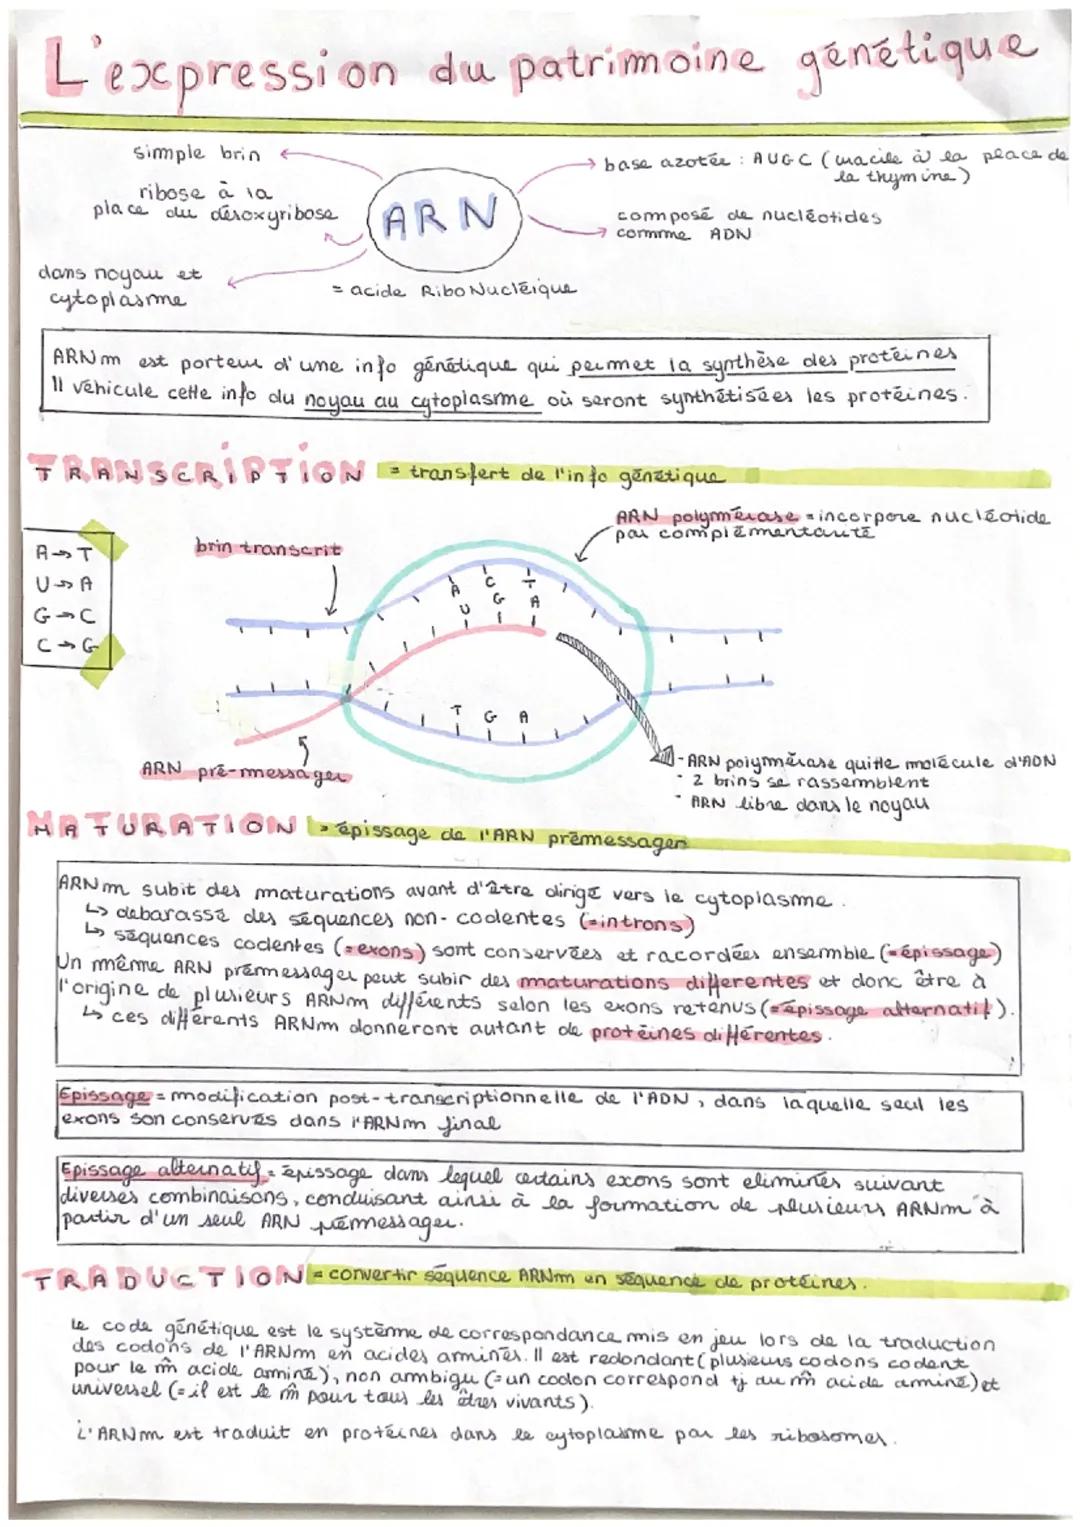 L'expression du patrimoine génétique
simple brin
base azotée : AUGC (uracile à la place de
la thymine)
ribose à la
place du désoxyribose
ARN
composé de nucléotides
comme ADN
dans noyau et
cytoplasme
= acide RiboNucléique
ARNm est porteur d'une info génétique qui permet la synthèse des protéines
Il véhicule cette info du noyau au cytoplasme où seront synthétisées les protéines.
TRANSCRIPTION = transfert de l'info génétique
ARN polymérase = incorpore nucléotide
par complémentarité
A → T
U → A
G → C
C → G
brin transcrit
A C T
U G A
T G A
ARN pré-messager
- ARN polymérase quitte molécule d'ADN
- 2 brins se rassemblent
- ARN libre dans le noyau
MATURATION = épissage de l'ARN prémessager
ARNm subit des maturations avant d'être dirigé vers le cytoplasme.
↳ debarassé des séquences non-codentes (=introns)
↳ séquences codentes (=exons) sont conservées et racordées ensemble (=épissage)
Un même ARN prémessager peut subir des maturations differentes et donc être à
l'origine de plusieurs ARNm différents selon les exons retenus (=épissage alternatif).
↳ ces différents ARNm donneront autant de protéines différentes.
Epissage = modification post-transcriptionnelle de l'ADN, dans laquelle seul les
exons son conservés dans l'ARNm final
Epissage alternatif = épissage dans lequel certains exons sont eliminés suivant
diverses combinaisons, conduisant ainsi à la formation de plusieurs ARNm à
partir d'un seul ARN prémessager.
TRADUCTION = convertir séquence ARNm en séquence de protéines.
Le code génétique est le système de correspondance mis en jeu lors de la traduction
des codons de l'ARNm en acides aminés. Il est redondant (plusieurs codons codent
pour le m̂ acide aminé), non ambigu (=un codon correspond tj au m̂ acide aminé) et
universel (=il est le m̂ pour tous les êtres vivants).
L'ARNm est traduit en protéines dans le cytoplasme par les ribosomes.